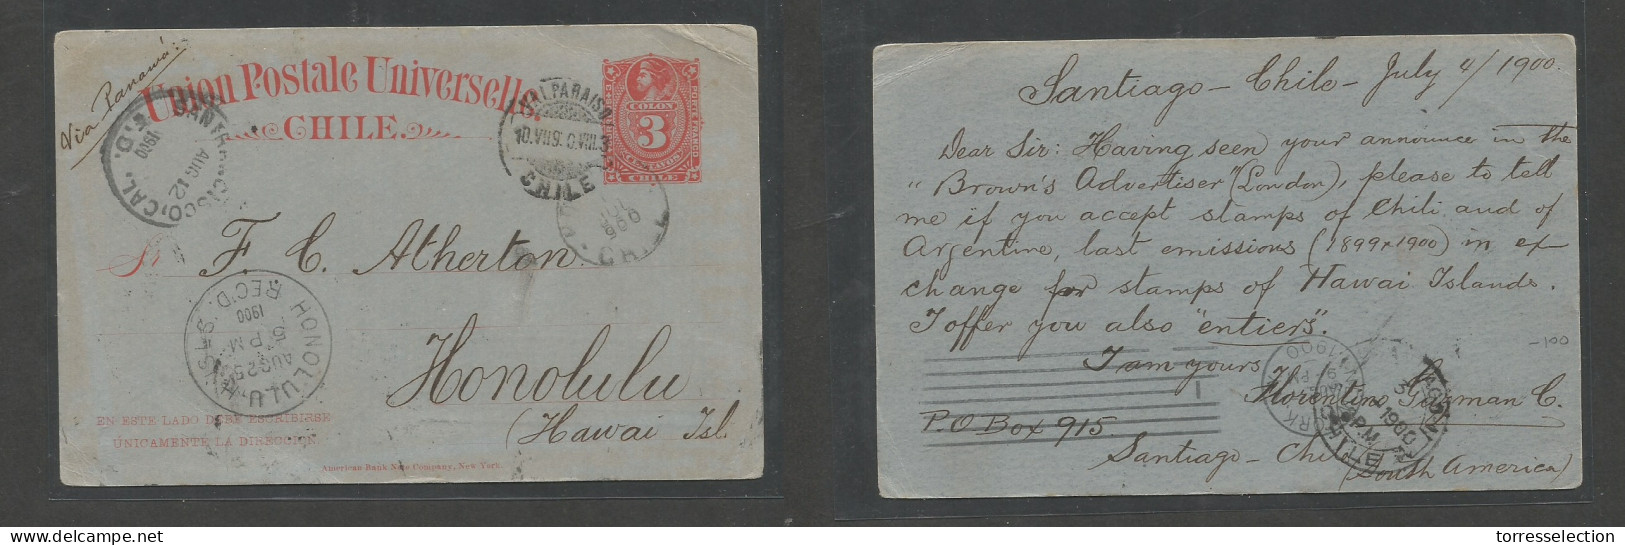 Via Panamá:
Union Postale Universelle.
CHILE.
COLON
3
CENTAVOS
CHILE
VALPARAISO
10.VII.9
CHILE
SAN FRANCISCO, CAL.
AUG 12
1900
REC'D.
Sr. F. C. Atherton
Honolulu
(Hawai Isl.
HONOLULU H. ISLS
AUG 25
5 PM
1900
REC'D.
EN ESTE LADO DEBE ESCRIBIRSE
UNICAMENTE LA DIRECCION.
American Bank Note Company, New York.
Santiago - Chile - July 4/1900.
Dear Sir: Having seen your announce in the
"Brown's Advertiser" (London), please to tell
me if you accept stamps of Chili and of
Argentine, last emissions (1899 & 1900) in ex
change for stamps of Hawai Islands.
I offer you also "entiers".
I am yours
Florentino Guzman C.
P.O Box 915.
Santiago - Chile
(South America)
-100
torresselection.com